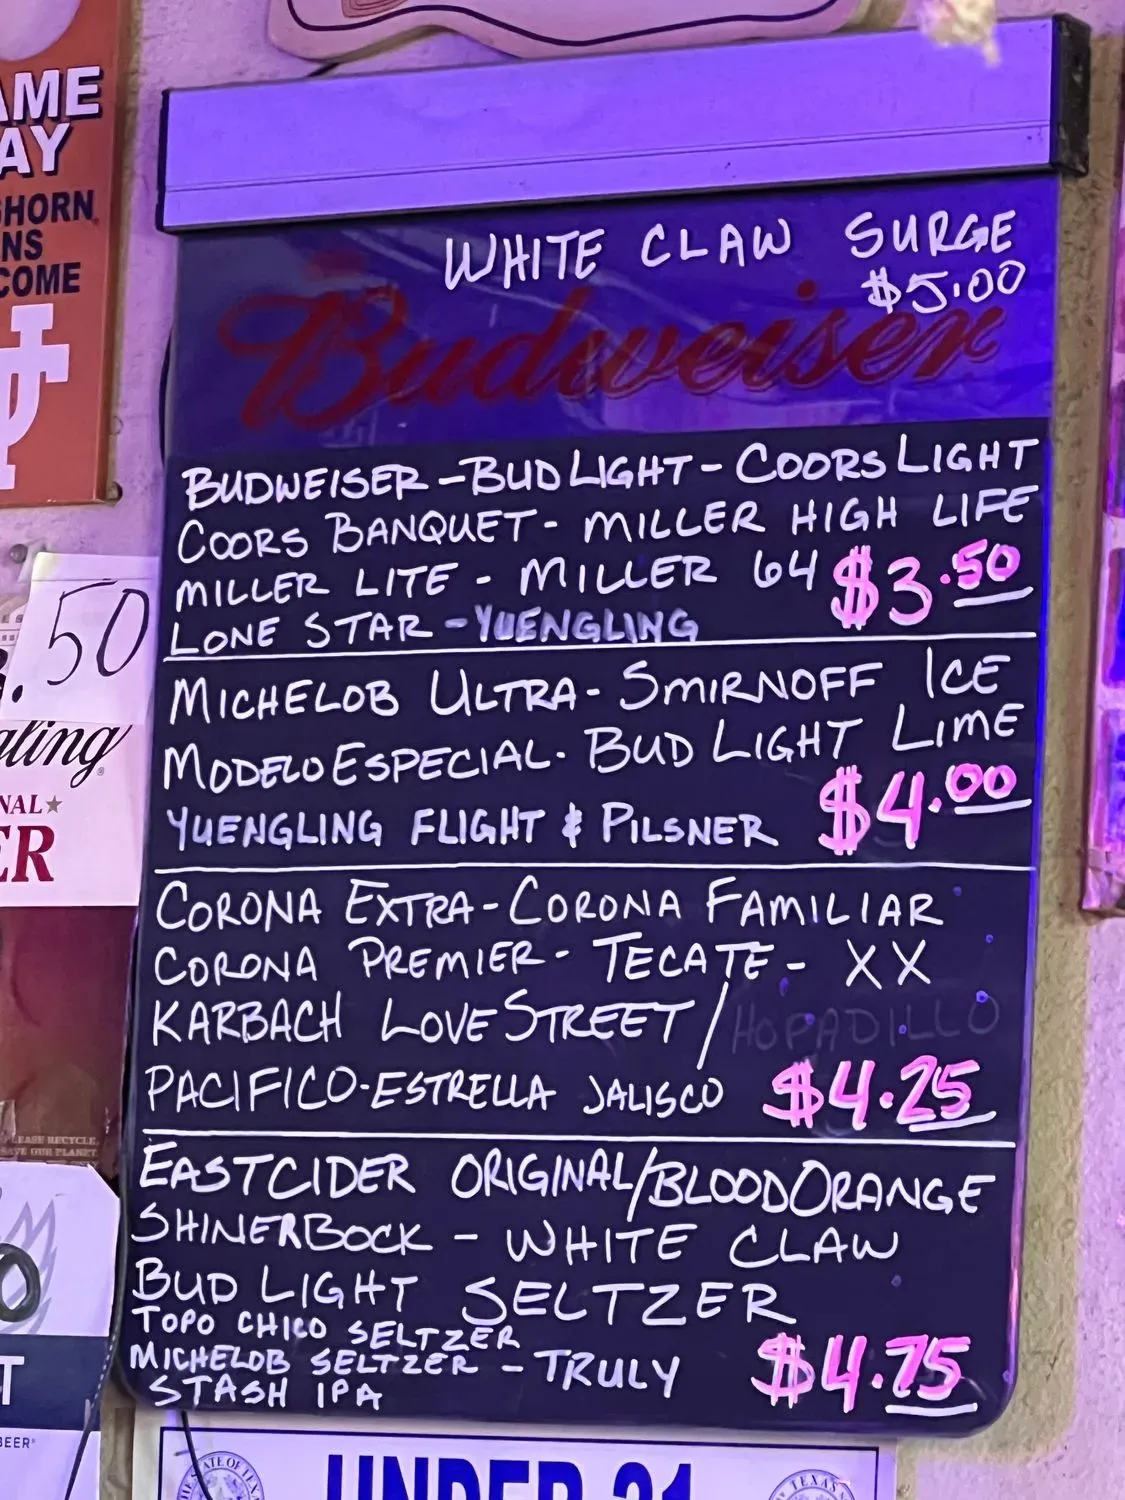 WHITE CLAW SURGE
$5.00
Budweiser
BUDWEISER - BUD LIGHT - COORS LIGHT
COORS BANQUET - MILLER HIGH LIFE
MILLER LITE - MILLER 64 $3.50
LONE STAR - YUENGLING
MICHELOB ULTRA - SMIRNOFF ICE
MODELO ESPECIAL - BUD LIGHT LIME
YUENGLING FLIGHT & PILSNER $4.00
CORONA EXTRA - CORONA FAMILIAR
CORONA PREMIER - TECATE - XX
KARBACH LOVE STREET / HOPADILLO
PACIFICO - ESTRELLA JALISCO $4.25
EASTCIDER ORIGINAL/BLOOD ORANGE
SHINER BOCK - WHITE CLAW
BUD LIGHT SELTZER
TOPO CHICO SELTZER
MICHELOB SELTZER - TRULY $4.75
STASH IPA
AME
AY
GHORN
NS
COME
.50
gling
NAL
ER
EASE RECYCLE.
VE OUR PLANET.
T
BEER
UNDER 21